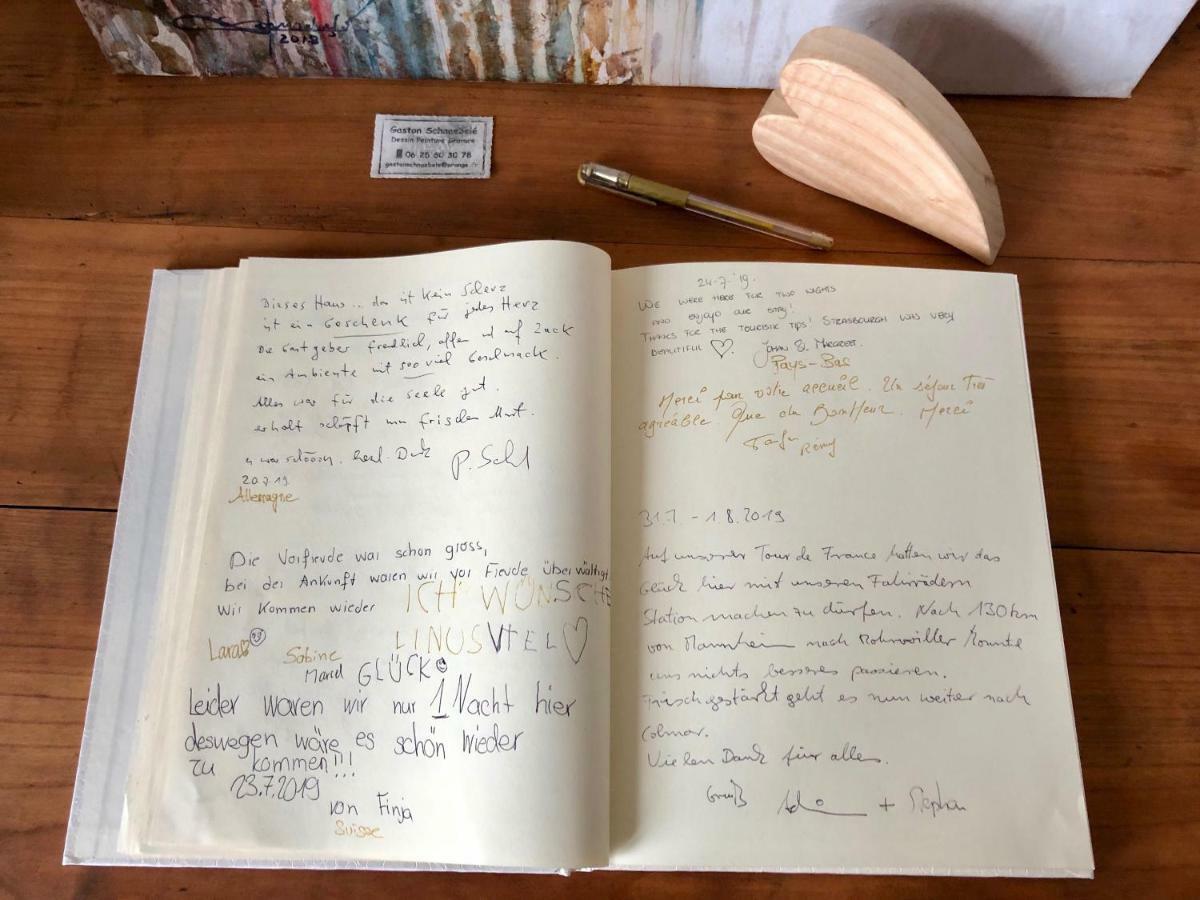 2018
Gaston Schnoebelé
Dessin Peinture Gravure
06 25 60 30 78
Dieses Haus... das ist kein Scherz
ist ein Geschenk für jedes Herz
Die Gastgeber freundlich, offen und auf Zack
ein Ambiente mit soo viel Geschmack.
Alles war für die Seele gut.
erholt schöpft man frischen Mut.
es war schöön. herzl. Dank
20.7.19
Allemagne
Die Vorfreude war schon gross,
bei der Ankunft waren wir vor Freude überwältigt
Wir kommen wieder
ICH WÜNSCHE
LINUS VIEL ♡
Lara
Sabine
Marcel GLÜCK
Leider waren wir nur 1 Nacht hier
deswegen wäre es schön wieder
zu kommen!!!
23.7.2019
von Finja
Suisse
24-7-'19.
WE WERE HERE FOR TWO NIGHTS
AND ENJOYD OUR STAY!
THANKS FOR THE TOURISTIK TIPS! STRASBOURG WAS VERY
BEAUTIFUL ♡. JOHAN & MARGREET.
Pays-Bas
Merci pour votre accueil. Un séjour Très
agréable. Que du Bonheur. Merci
Rémy
31.7. - 1.8.2019
Auf unserer Tour de France hatten wir das
Glück hier mit unseren Fahrrädern
Station machen zu dürfen. Nach 130 km
von Mannheim nach Rohrwiller konnte
uns nichts besseres passieren.
Frisch gestärkt geht es nun weiter nach
Colmar.
Vielen Dank für alles.
Gruß + Stephan